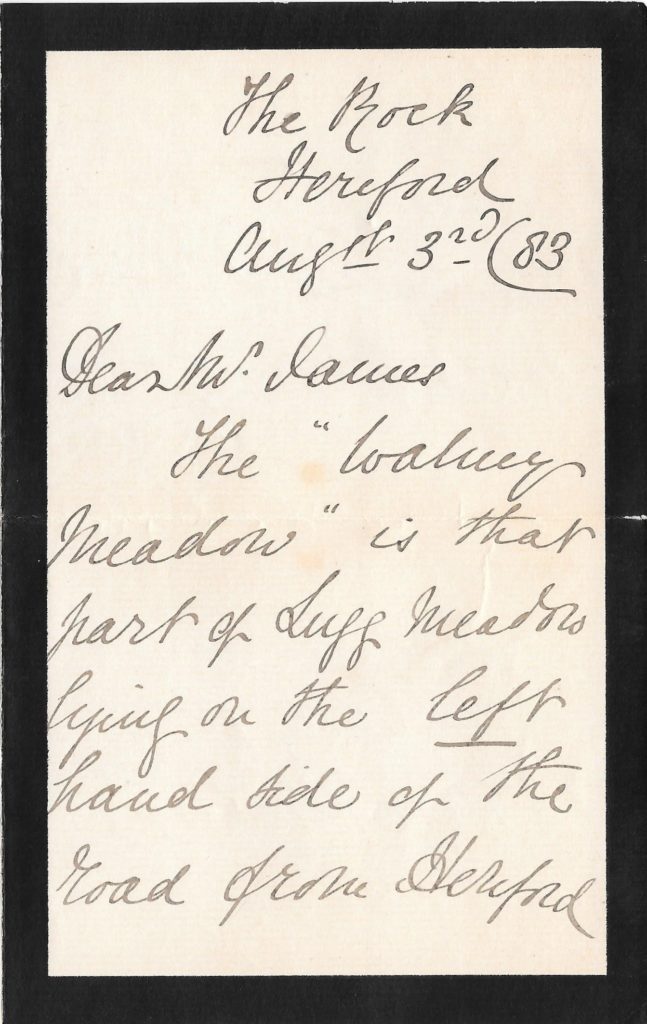 The Rock
Hereford
Augst 3rd /83
Dear Mr. James
The "Walney
Meadow" is that
part of Lugg Meadow
lying on the left
hand side of the
road from Hereford